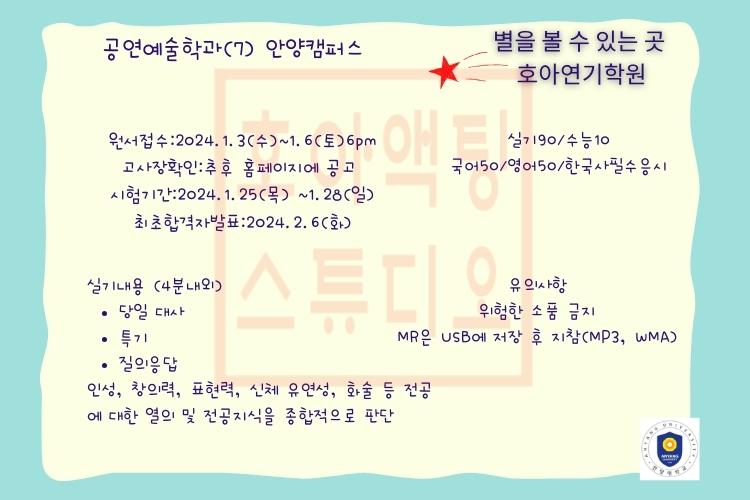 공연예술학과(7) 안양캠퍼스
별을 볼 수 있는 곳
호아연기학원
원서접수:2024.1.3(수)~1.6(토)6pm
고사장확인:추후 홈페이지에 공고
시험기간:2024.1.25(목) ~1.28(일)
최초합격자발표:2024.2.6(화)
실기90/수능10
국어50/영어50/한국사필수응시
호아액팅
스튜디오
실기내용 (4분내외)
• 당일 대사
• 특기
• 질의응답
인성, 창의력, 표현력, 신체 유연성, 화술 등 전공
에 대한 열의 및 전공지식을 종합적으로 판단
유의사항
위험한 소품 금지
MR은 USB에 저장 후 지참(MP3, WMA)
ANYANG UNIVERSITY
ANYANG
안양대학교